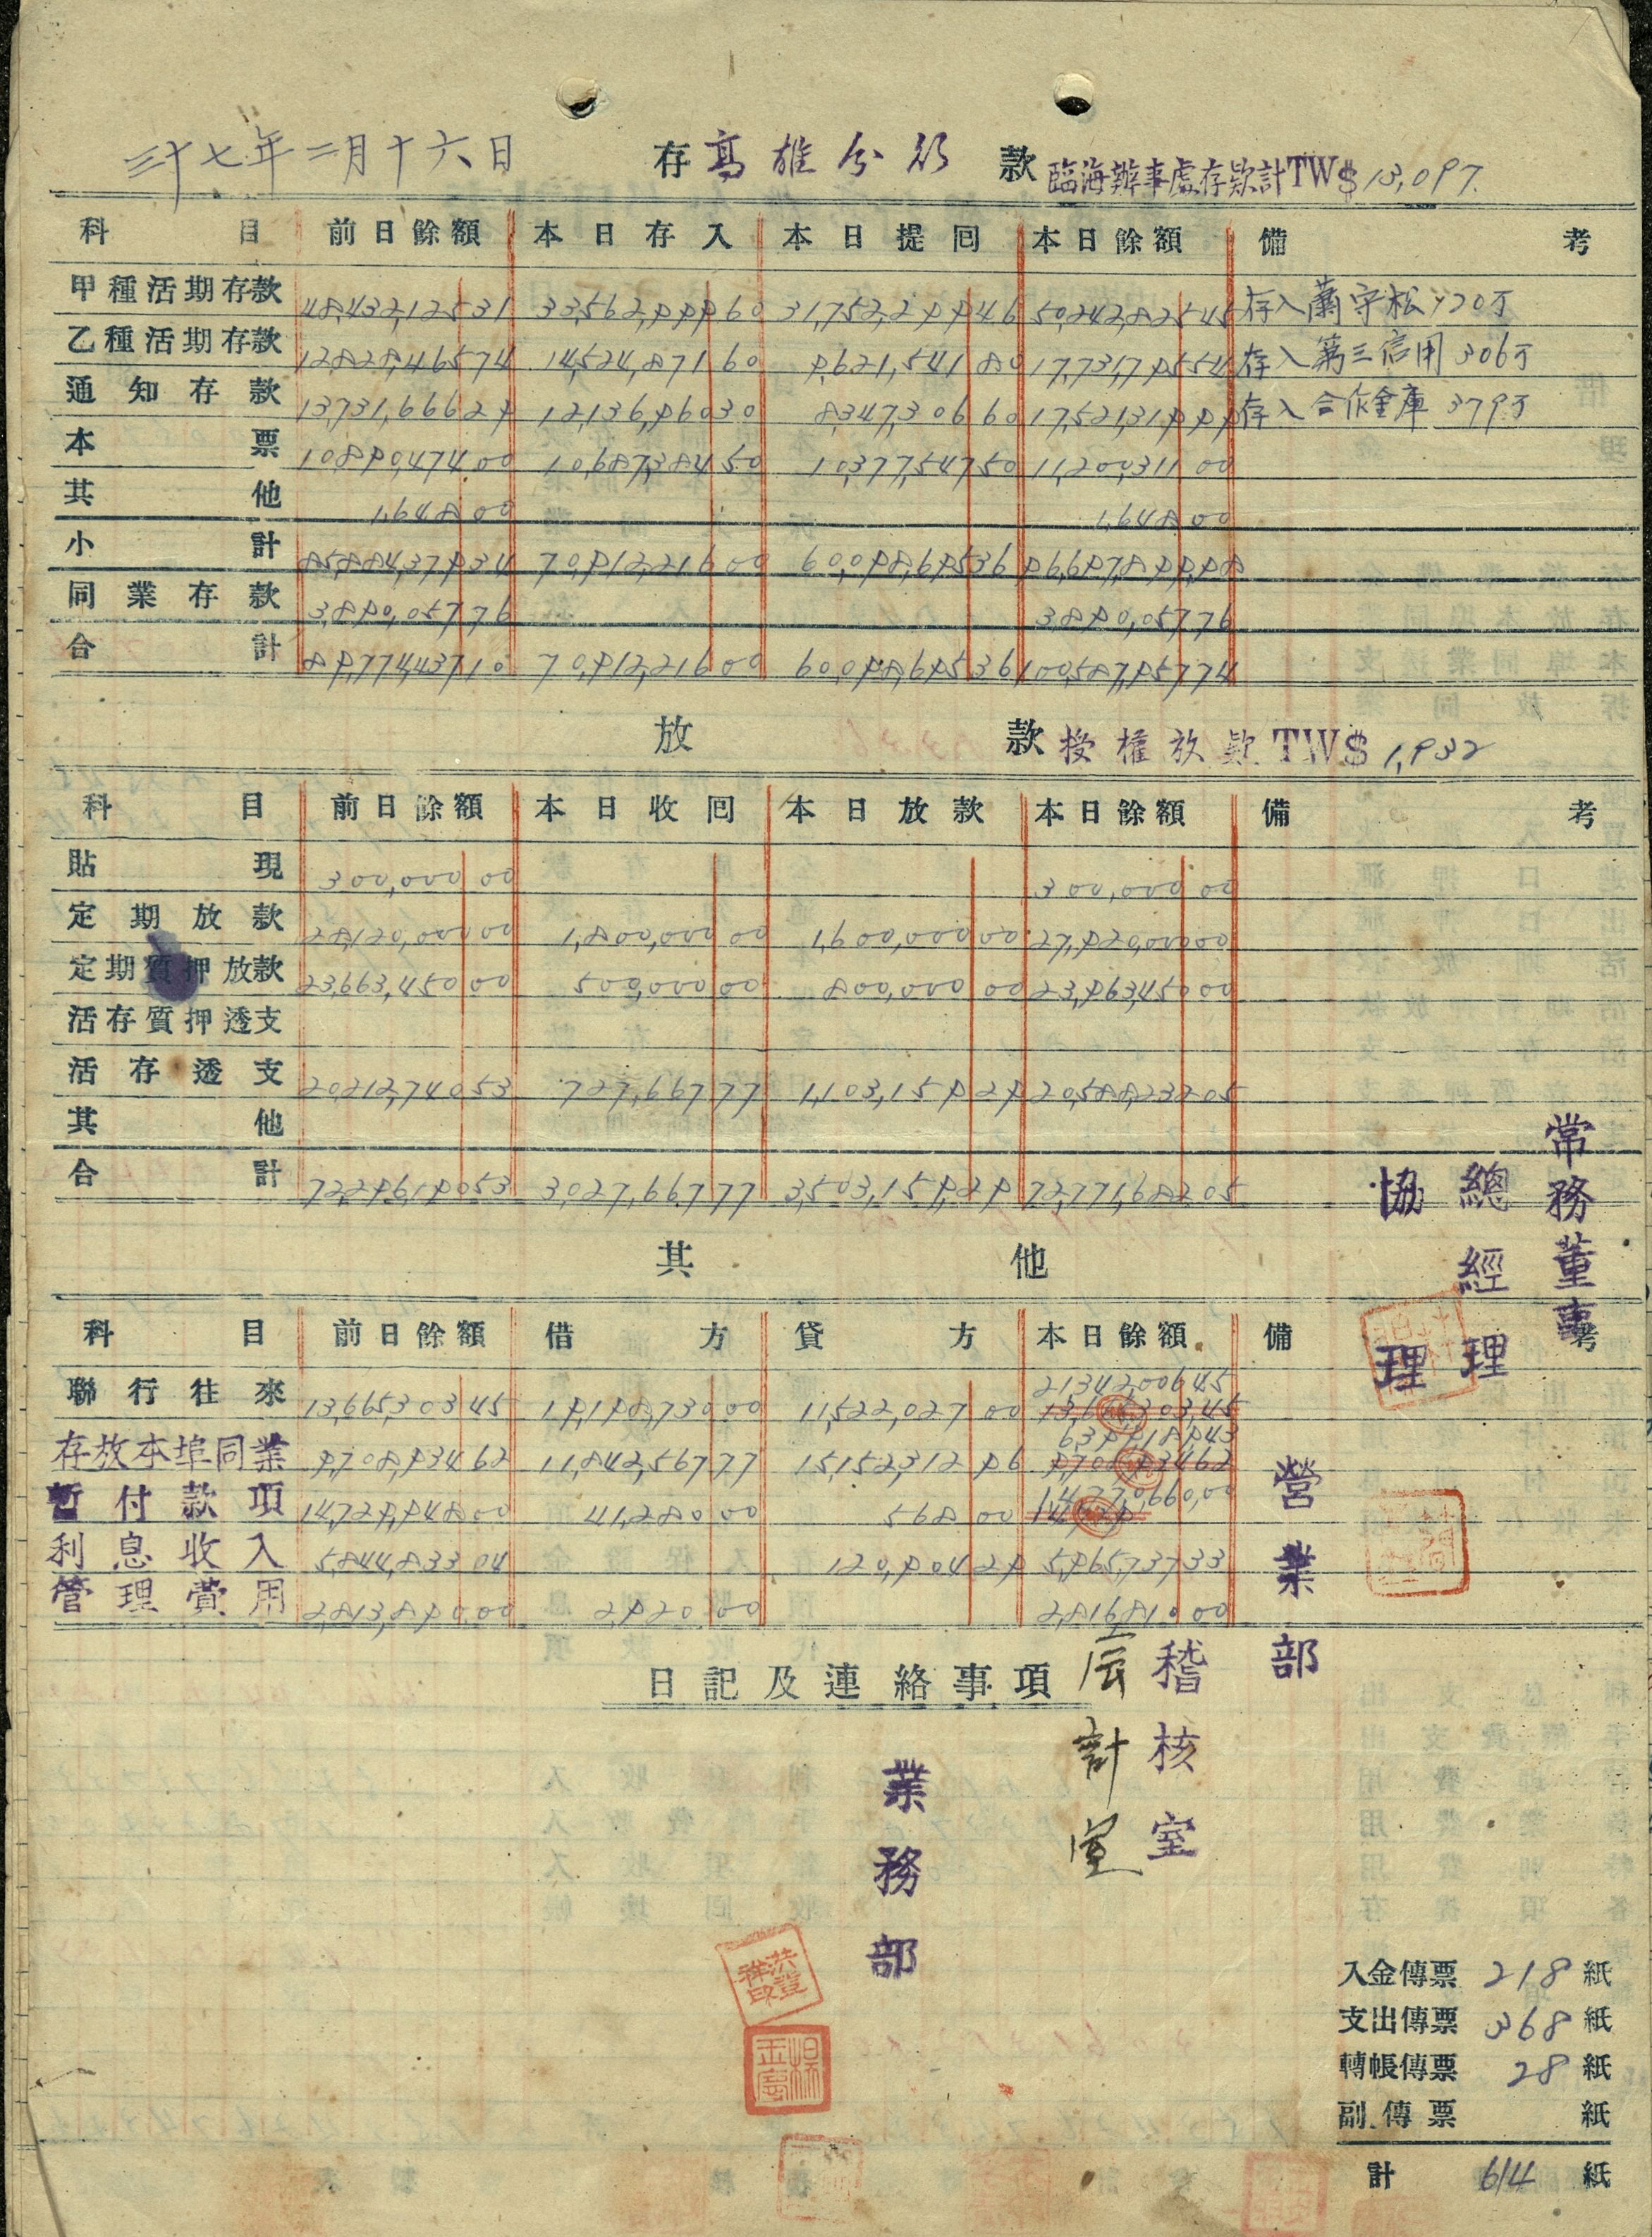 三十七年二月十六日 存 高雄分行 款 臨海辦事處存欵計TW$13,097.
科目 前日餘額 本日存入 本日提囘 本日餘額 備考
甲種活期存款 48,432,125.31 33,562,999.60 31,752,299.46 50,242,825.45 存入蕭守松 720万
乙種活期存款 12,828,465.74 14,524,871.60 9,621,541.80 17,731,795.54 存入第三信用 306万
通知存款 13,731,666.29 12,136,960.30 8,347,306.60 17,521,319.99 存入合作金庫 379万
本票 10,890,474.00 10,687,384.50 10,377,547.50 11,200,311.00
其他 1,648.00 1,648.00
小計 85,884,379.34 70,912,216.00 60,098,695.36 96,697,899.98
同業存款 3,890,057.76 3,890,057.76
合計 89,774,437.10 70,912,216.00 60,098,695.36 100,587,957.74
放款 授權放欵 TW$ 1,932
科目 前日餘額 本日收囘 本日放款 本日餘額 備考
貼現 300,000.00 300,000.00
定期放款 28,120,000.00 1,800,000.00 1,600,000.00 27,920,000.00
定期質押放款 23,663,450.00 500,000.00 800,000.00 23,963,450.00
活存質押透支
活存透支 20,212,740.53 727,667.77 1,103,159.29 20,588,232.05
其他
合計 72,296,190.53 3,027,667.77 3,503,159.29 72,771,682.05
常務董事
總經理
協理
其他
科目 前日餘額 借方 貸方 本日餘額 備考
聯行往來 13,665,303.45 19,198,730.00 11,522,027.00 21,342,006.45
存放本埠同業 9,708,934.62 11,842,567.77 15,152,312.96 6,399,189.43
暫付款項 14,729,948.00 41,280.00 568.00 14,770,660.00
利息收入 5,844,833.04 120,904.29 5,965,737.33
管理費用 2,813,890.00 2,920.00 2,816,810.00
營業部
日記及連絡事項
稽核室
計室
業務部
洪登祥印
入金傳票 218 紙
支出傳票 368 紙
轉帳傳票 28 紙
副傳票 紙
計 614 紙